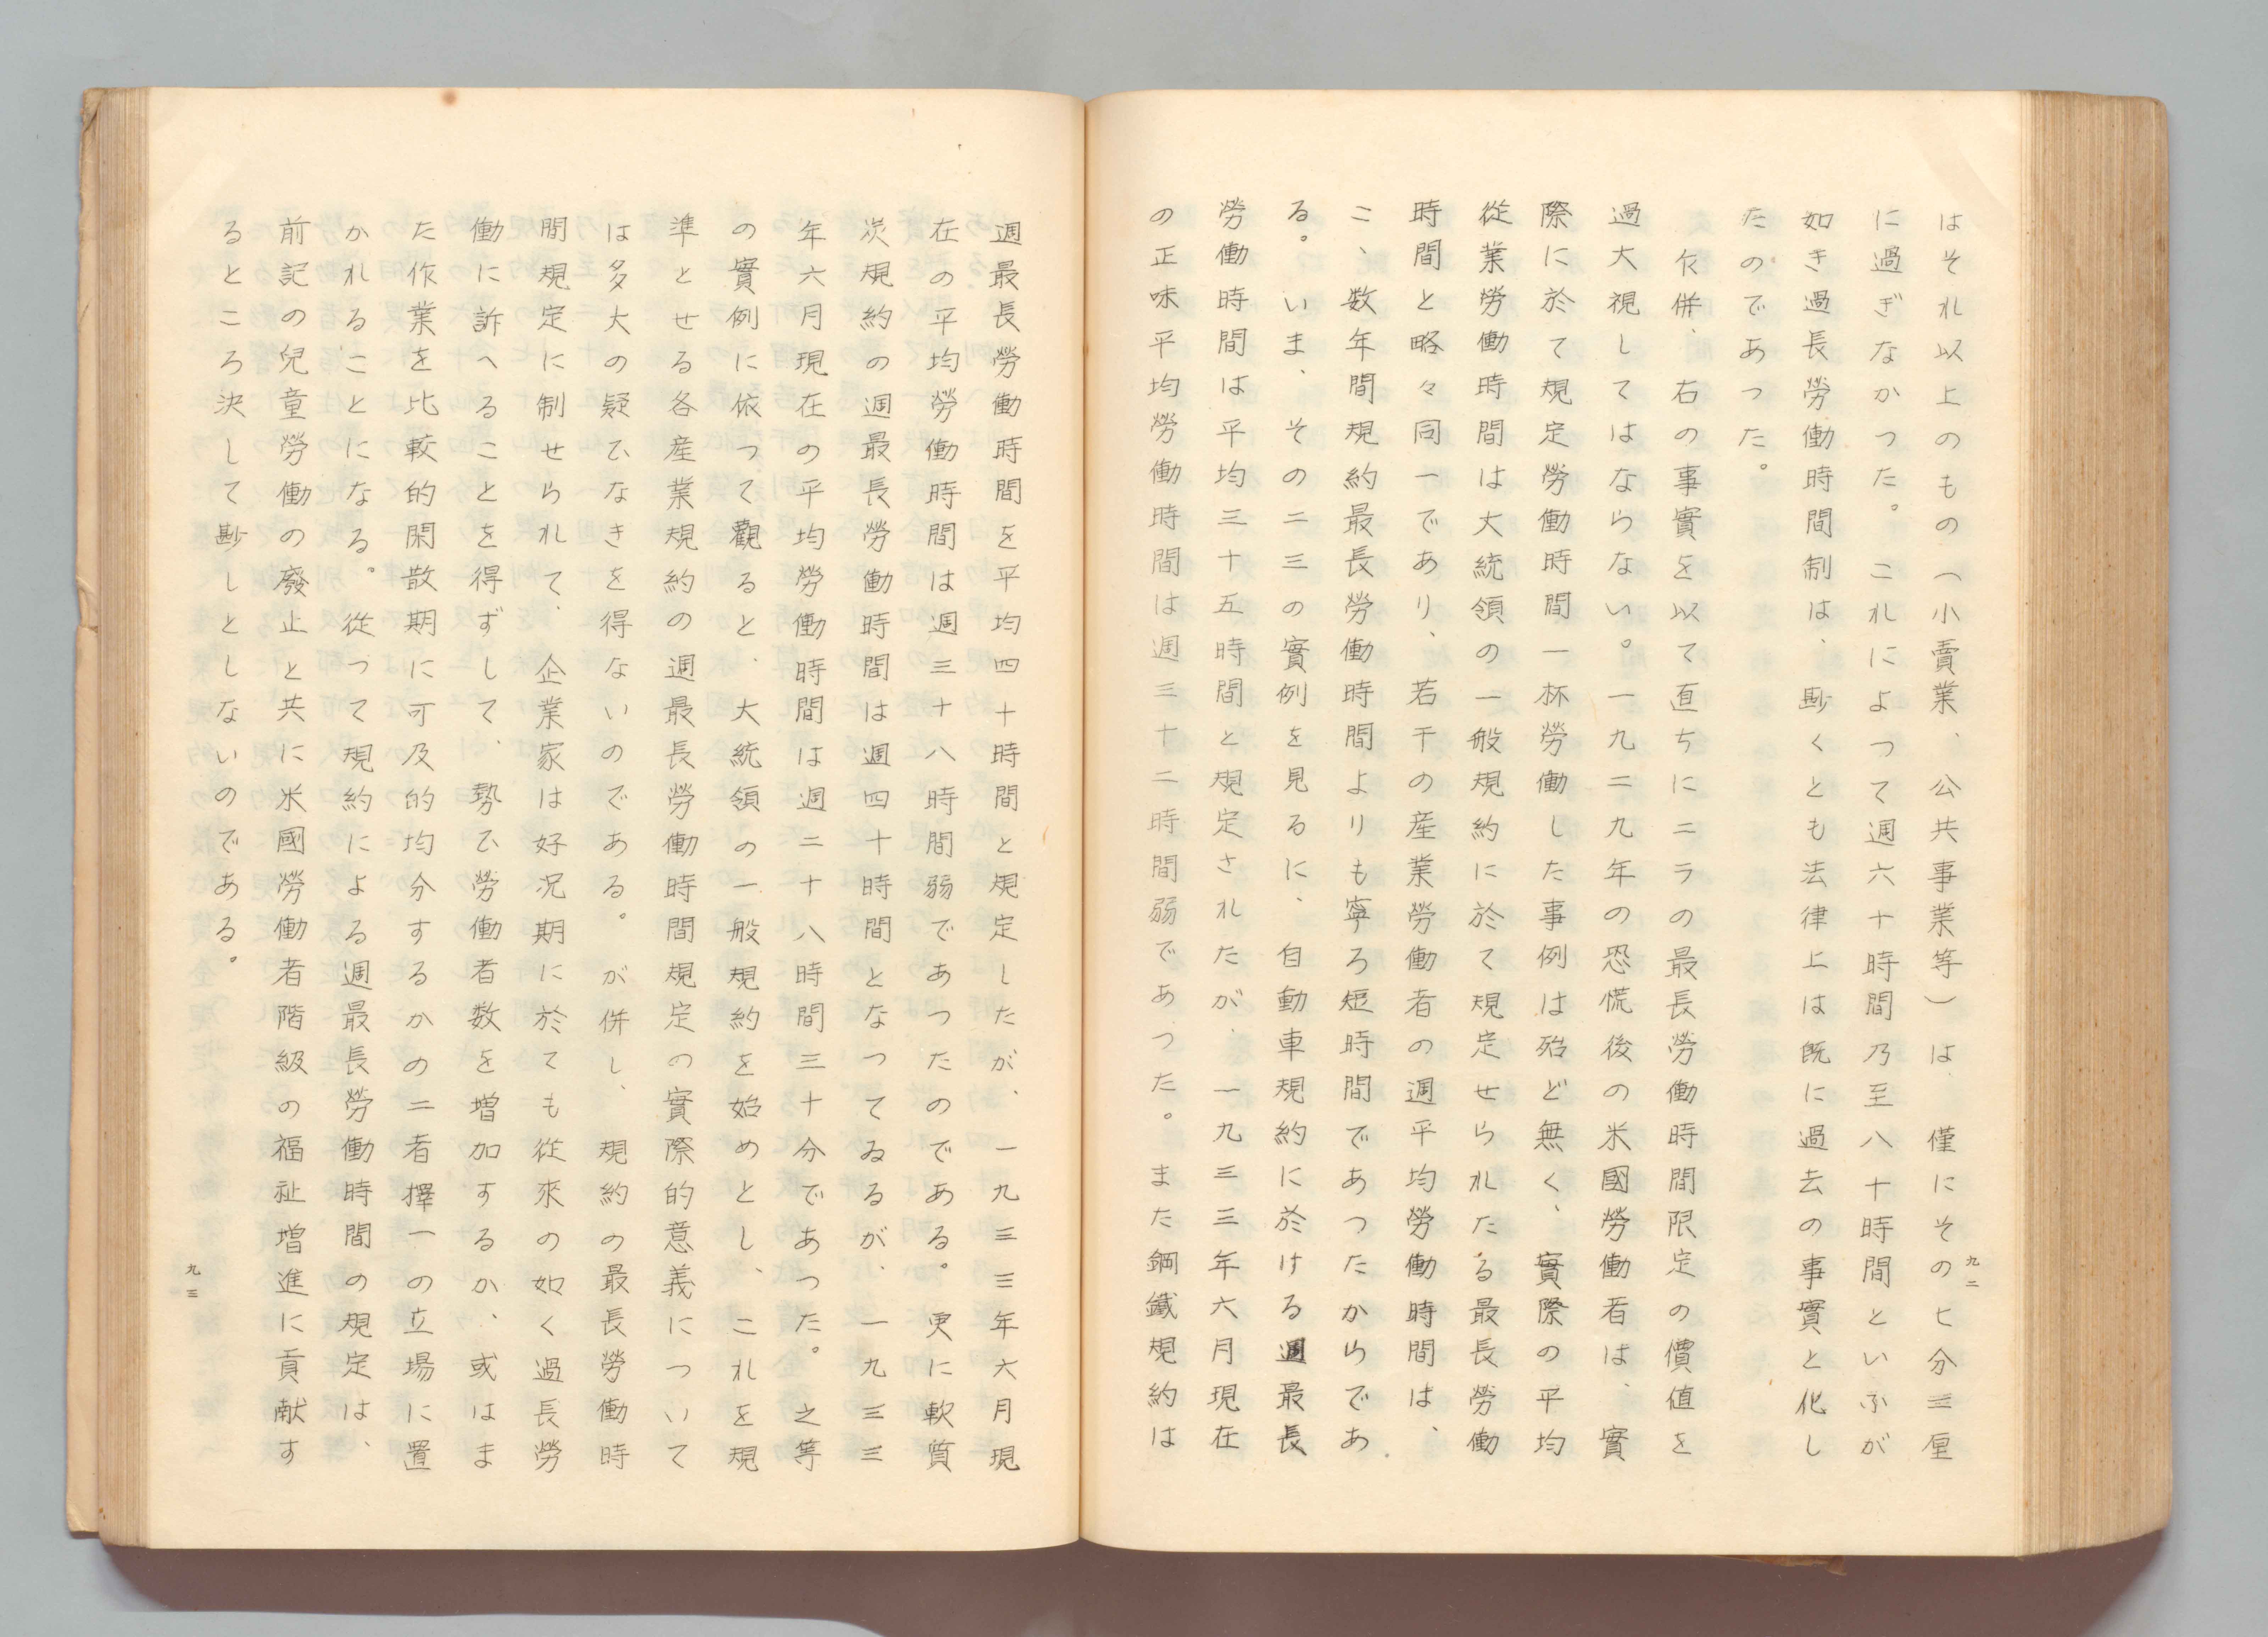 はそれ以上のもの（小賣業、公共事業等）は、僅にその七分三厘
に過ぎなかつた。これによつて週六十時間乃至八十時間といふが
如き過長勞働時間制は、尠くとも法律上は既に過去の事實と化し
たのであつた。
乍併、右の事實を以て直ちにニラの最長勞働時間限定の價値を
過大視してはならない。一九二九年の恐慌後の米國勞働者は、實
際に於て規定勞働時間一杯勞働した事例は殆ど無く、實際の平均
從業勞働時間は大統領の一般規約に於て規定せられたる最長勞働
時間と略々同一であり、若干の産業勞働者の週平均勞働時間は、
こゝ数年間規約最長勞働時間よりも寧ろ短時間であつたからであ
る。いま、その二三の實例を見るに、自動車規約に於ける週最長
勞働時間は平均三十五時間と規定されたが、一九三三年六月現在
の正味平均勞働時間は週三十二時間弱であつた。また鋼鐵規約は
九二
週最長勞働時間を平均四十時間と規定したが、一九三三年六月現
在の平均勞働時間は週三十八時間弱であつたのである。更に軟質
炭規約の週最長勞働時間は週四十時間となつてゐるが、一九三三
年六月現在の平均勞働時間は週二十八時間三十分であつた。之等
の實例に依つて觀ると、大統領の一般規約を始めとし、これを規
準とせる各産業規約の週最長勞働時間規定の實際的意義について
は多大の疑ひなきを得ないのである。が併し、規約の最長勞働時
間規定に制せられて、企業家は好況期に於ても從來の如く過長勞
働に訴へることを得ずして、勢ひ勞働者数を増加するか、或はま
た作業を比較的閑散期に可及的均分するかの二者擇一の立場に置
かれることになる。從つて規約による週最長勞働時間の規定は、
前記の兒童勞働の廢止と共に米國勞働者階級の福祉増進に貢献す
るところ決して尠しとしないのである。
九三